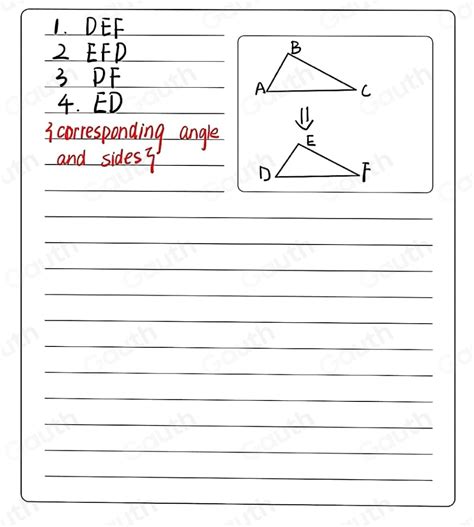 1. DEF
2 EFD
3 DF
4. ED
{corresponding angle
and sides}
B
A
C
E
D
F
Gauth